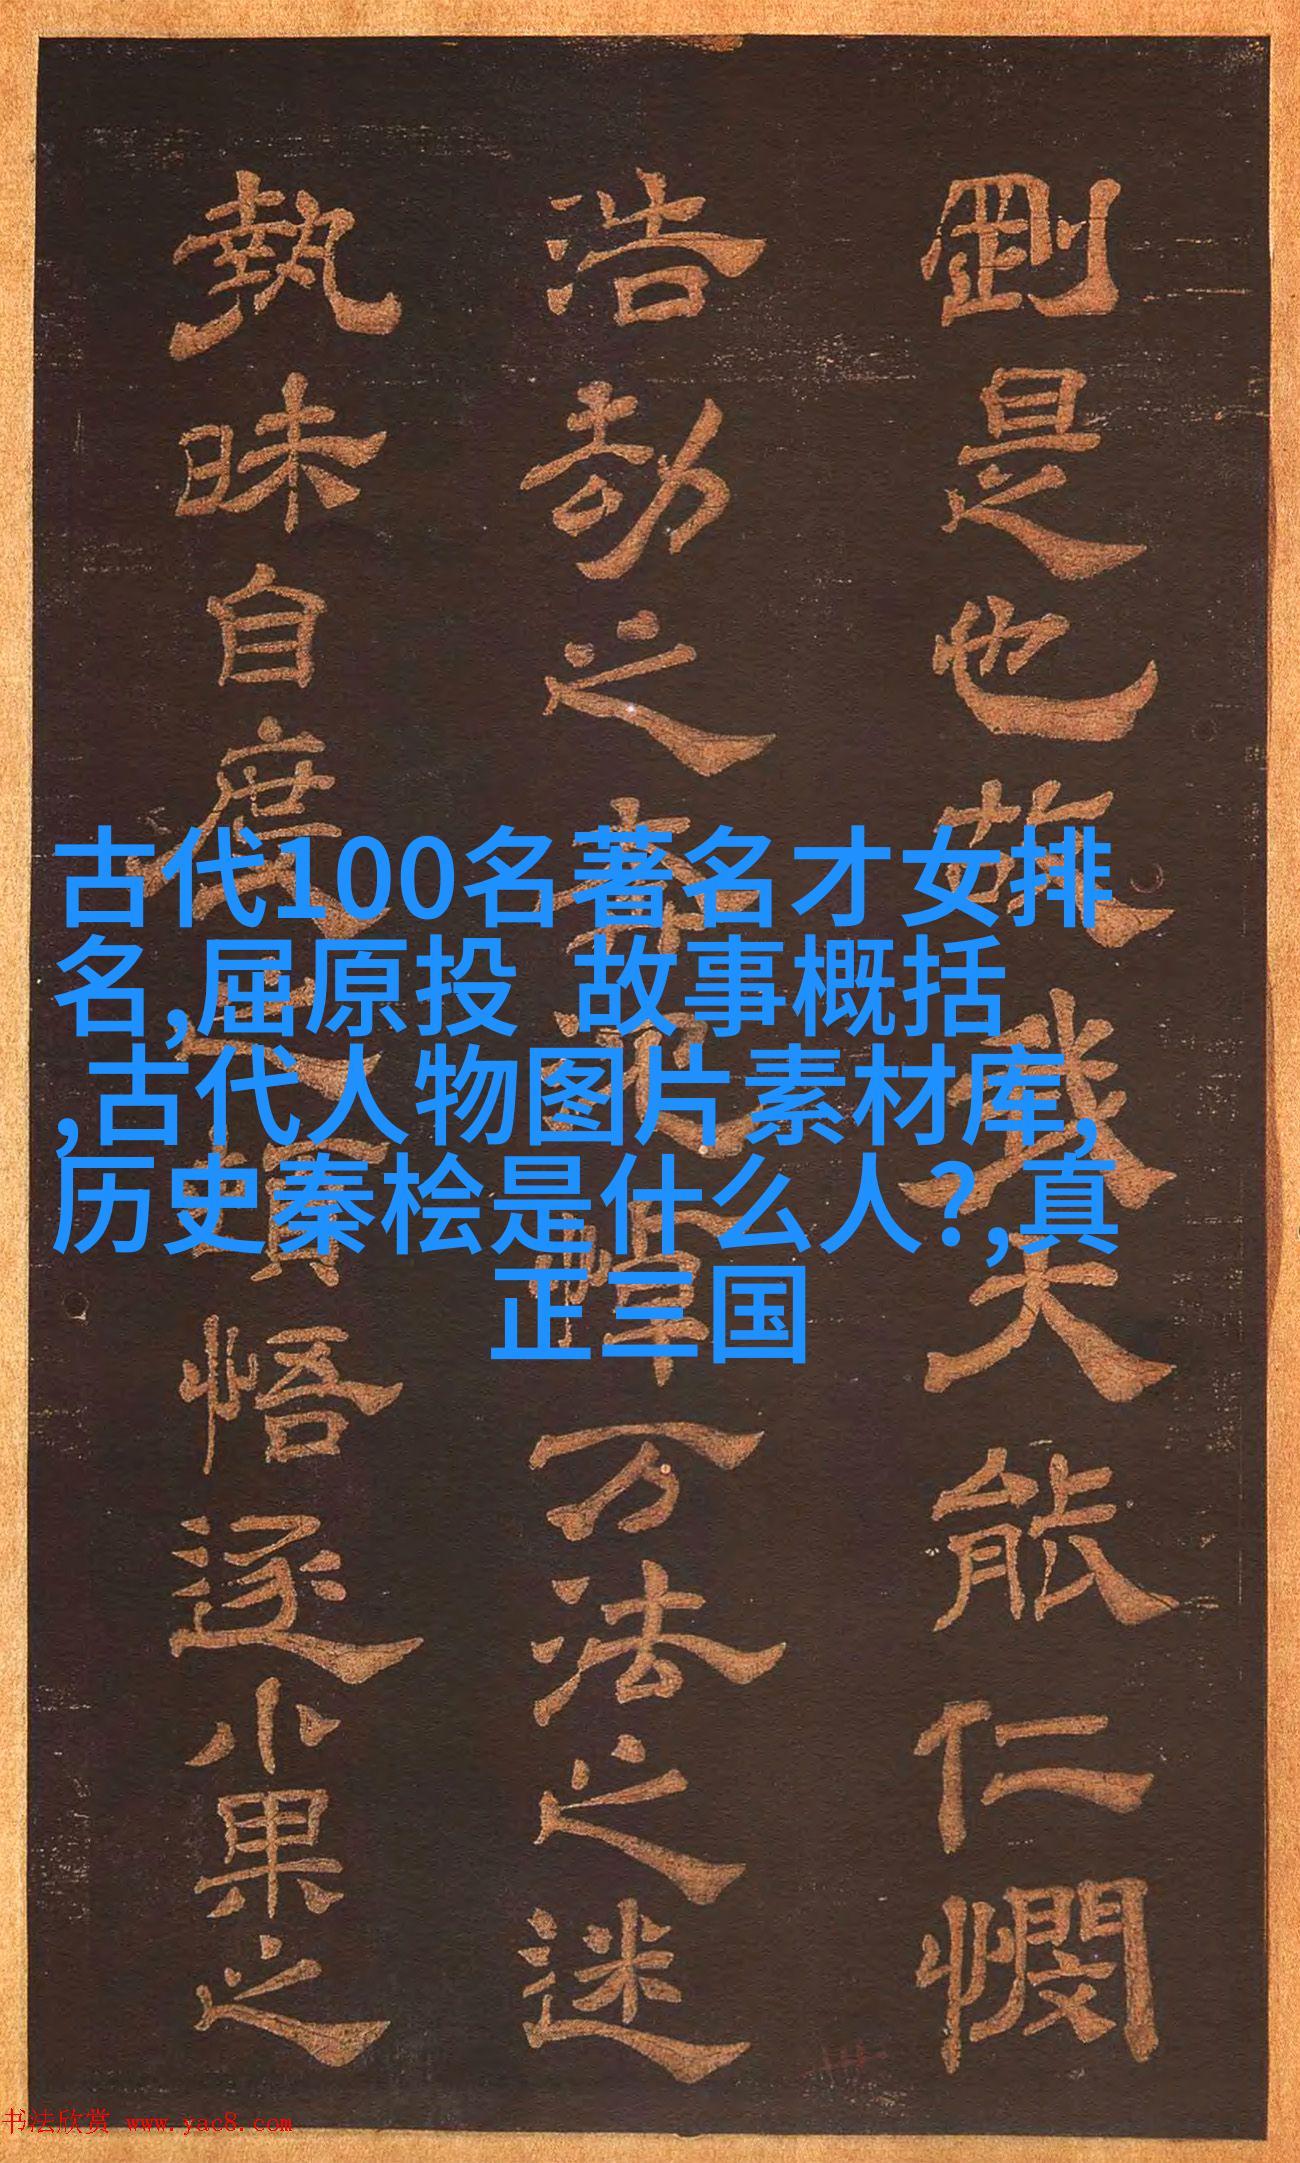 剛是也大能仁憫
浩劫之万法之迷
執昧自度悟遂小果之
古代100名著名才女排
名,屈原投 故事概括
,古代人物图片素材库,
历史秦桧是什么人?,真
正三国
书法欣赏 www.yac8.com